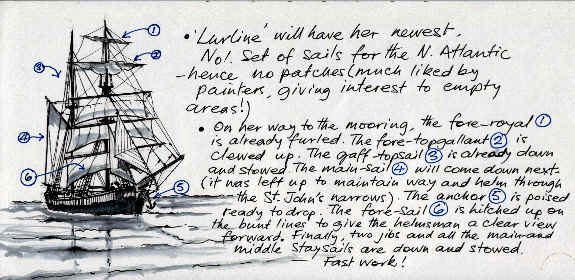 • 'Lurline' will have her newest.
No1. Set of sails for the N. Atlantic
- hence, no patches (much liked by
painters, giving interest to empty
areas!)
• On her way to the mooring, the fore-royal ①
is already furled. The fore-topgallant ② is
clewed up. The gaff topsail ③ is already down
and stowed. The main-sail ④ will come down next.
(it was left up to maintain way and helm through
the St. John's narrows). The anchor ⑤ is poised
ready to drop. The fore-sail ⑥ is hitched up on
the bunt lines to give the helmsman a clear view
forward. Finally, two jibs and all the main-and
middle staysails are down and stowed.
— Fast work!
①
②
③
④
⑥
⑤